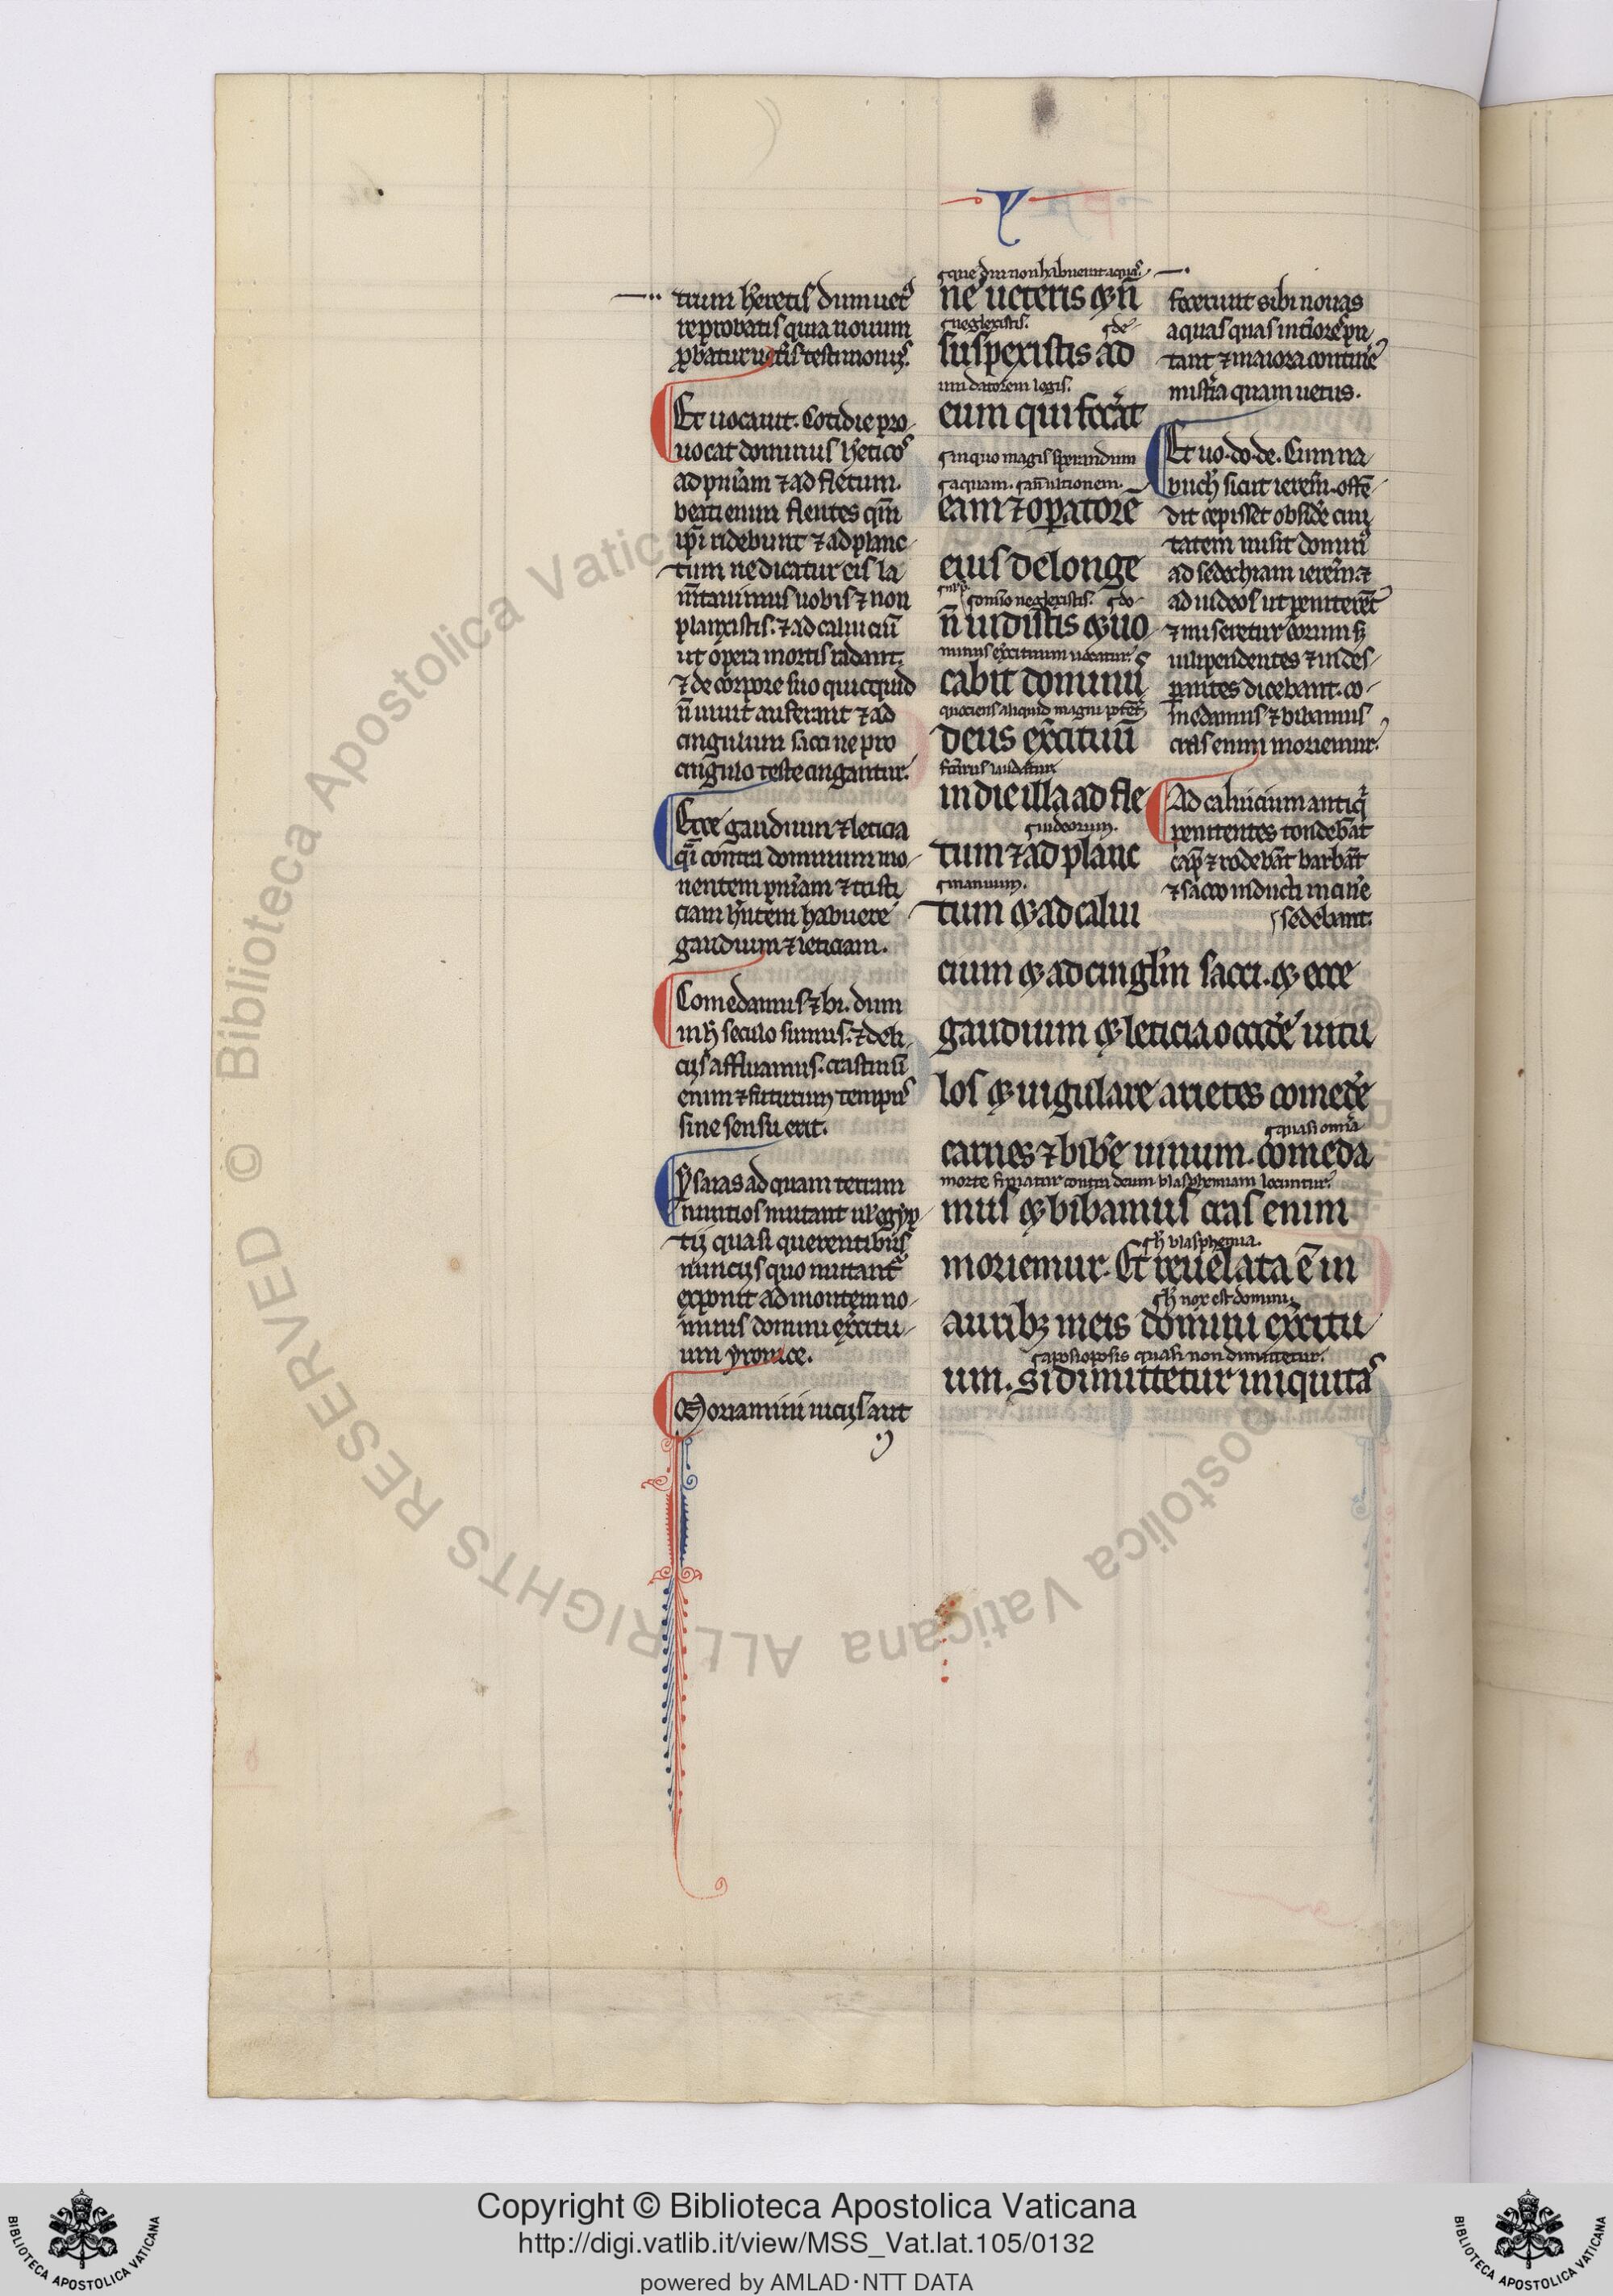 Y
trium heretis dum uet᷒
reprobatis quia nouum
ꝓbatur uet̾is testimonijs.
Et uocauit. Cotidie pro
uocat dominus h̾etico᷒
ad pn̄iam ⁊ ad fletum.
beati enim flentes qm̄
ip̄i ridebunt ⁊ ad planc
tum ne dicatur eis la
m̄tauimus uobis ⁊ non
planxistis. ⁊ ad caluiciū
ut opera mortis radant.
⁊ de corpore suo quicquid
n̄ uiuit auferant ⁊ ad
cingulum sacci ne pro
cingulo reste cingantur.
Ecce gaudium ⁊ leticia
q̄i contra dominum mo
nentem pn̄iam ⁊ tristi
ciam h̄ntem habuere
gaudium ⁊ leticiam.
Comedamus ⁊ bi. dum
in h̾ seculo sumus. ⁊ deli
cijs affluamus. crastinū
enim ⁊ futurum tempus
sine sensu erit.
ysaias ad quam terram
nuntios mittant ul' egyp
tij quasi querentibus
nuncijs quo mittant᷒
exponit ad montem no
minis domini exercitu
um yronice.
Moriamini inquit aut
ne ueteris ⁊ n̄
neglexistis. de
suspexistis ad
um datorem legis.
eum qui fecerat
in quo magis sperandum
aquam.
eam ⁊ oꝑatorē
eius de longe
omnino neglexistis. do
n̄ uidistis ⁊ uo
minus exercituum uocatur.
cabit dominus
quociens aliquid magni
deus exercituū
facturus
in die illa ad fle
iudeorum.
tum ⁊ ad planc
manuum.
tum ⁊ ad calui
cium ⁊ ad cingl'm sacci. ⁊ ecce
gaudium ⁊ leticia occide̾ uitu
los ⁊ iugulare arietes comede̾
quasi omnia
carnes ⁊ bibe̾ uinum. comeda
morte finiatur contra deum blasphemiam locuntur.
mus ⁊ bibamus cras enim
h̾ blasphemia.
moriemur. Et reuelata ē in
h̾ uox est domini
auribꝫ meis domini exercitu
aposioposis quasi non dimittetur.
um. Si dimittetur iniquitas
fecerunt sibi nouas
aquas quas inferiores pu
tant ⁊ maiora contine̾
misteria quam uetus.
Et uo. do. de. Cum na
buch̾ sicut ierem̄. osten
dit cepisset obside̾ ciui
tatem misit dominus
ad sedechiam ieremiā ⁊
ad iudeos ut peniterent
⁊ misereretur eorum sꝫ
uilipendentes ⁊ in des
perantes dicebant. co
medamus ⁊ bibamus
cras enim moriemur.
Ad caluicium antiq̾
penitentes tondebāt
cap̄ ⁊ rodebāt barbam
⁊ sacco induti in cine̾
sedebant.
© Biblioteca Apostolica Vaticana
ALL RIGHTS RESERVED
BIBLIOTECA APOSTOLICA VATICANA
Copyright © Biblioteca Apostolica Vaticana
http://digi.vatlib.it/view/MSS_Vat.lat.105/0132
powered by AMLAD·NTT DATA
BIBLIOTECA APOSTOLICA VATICANA